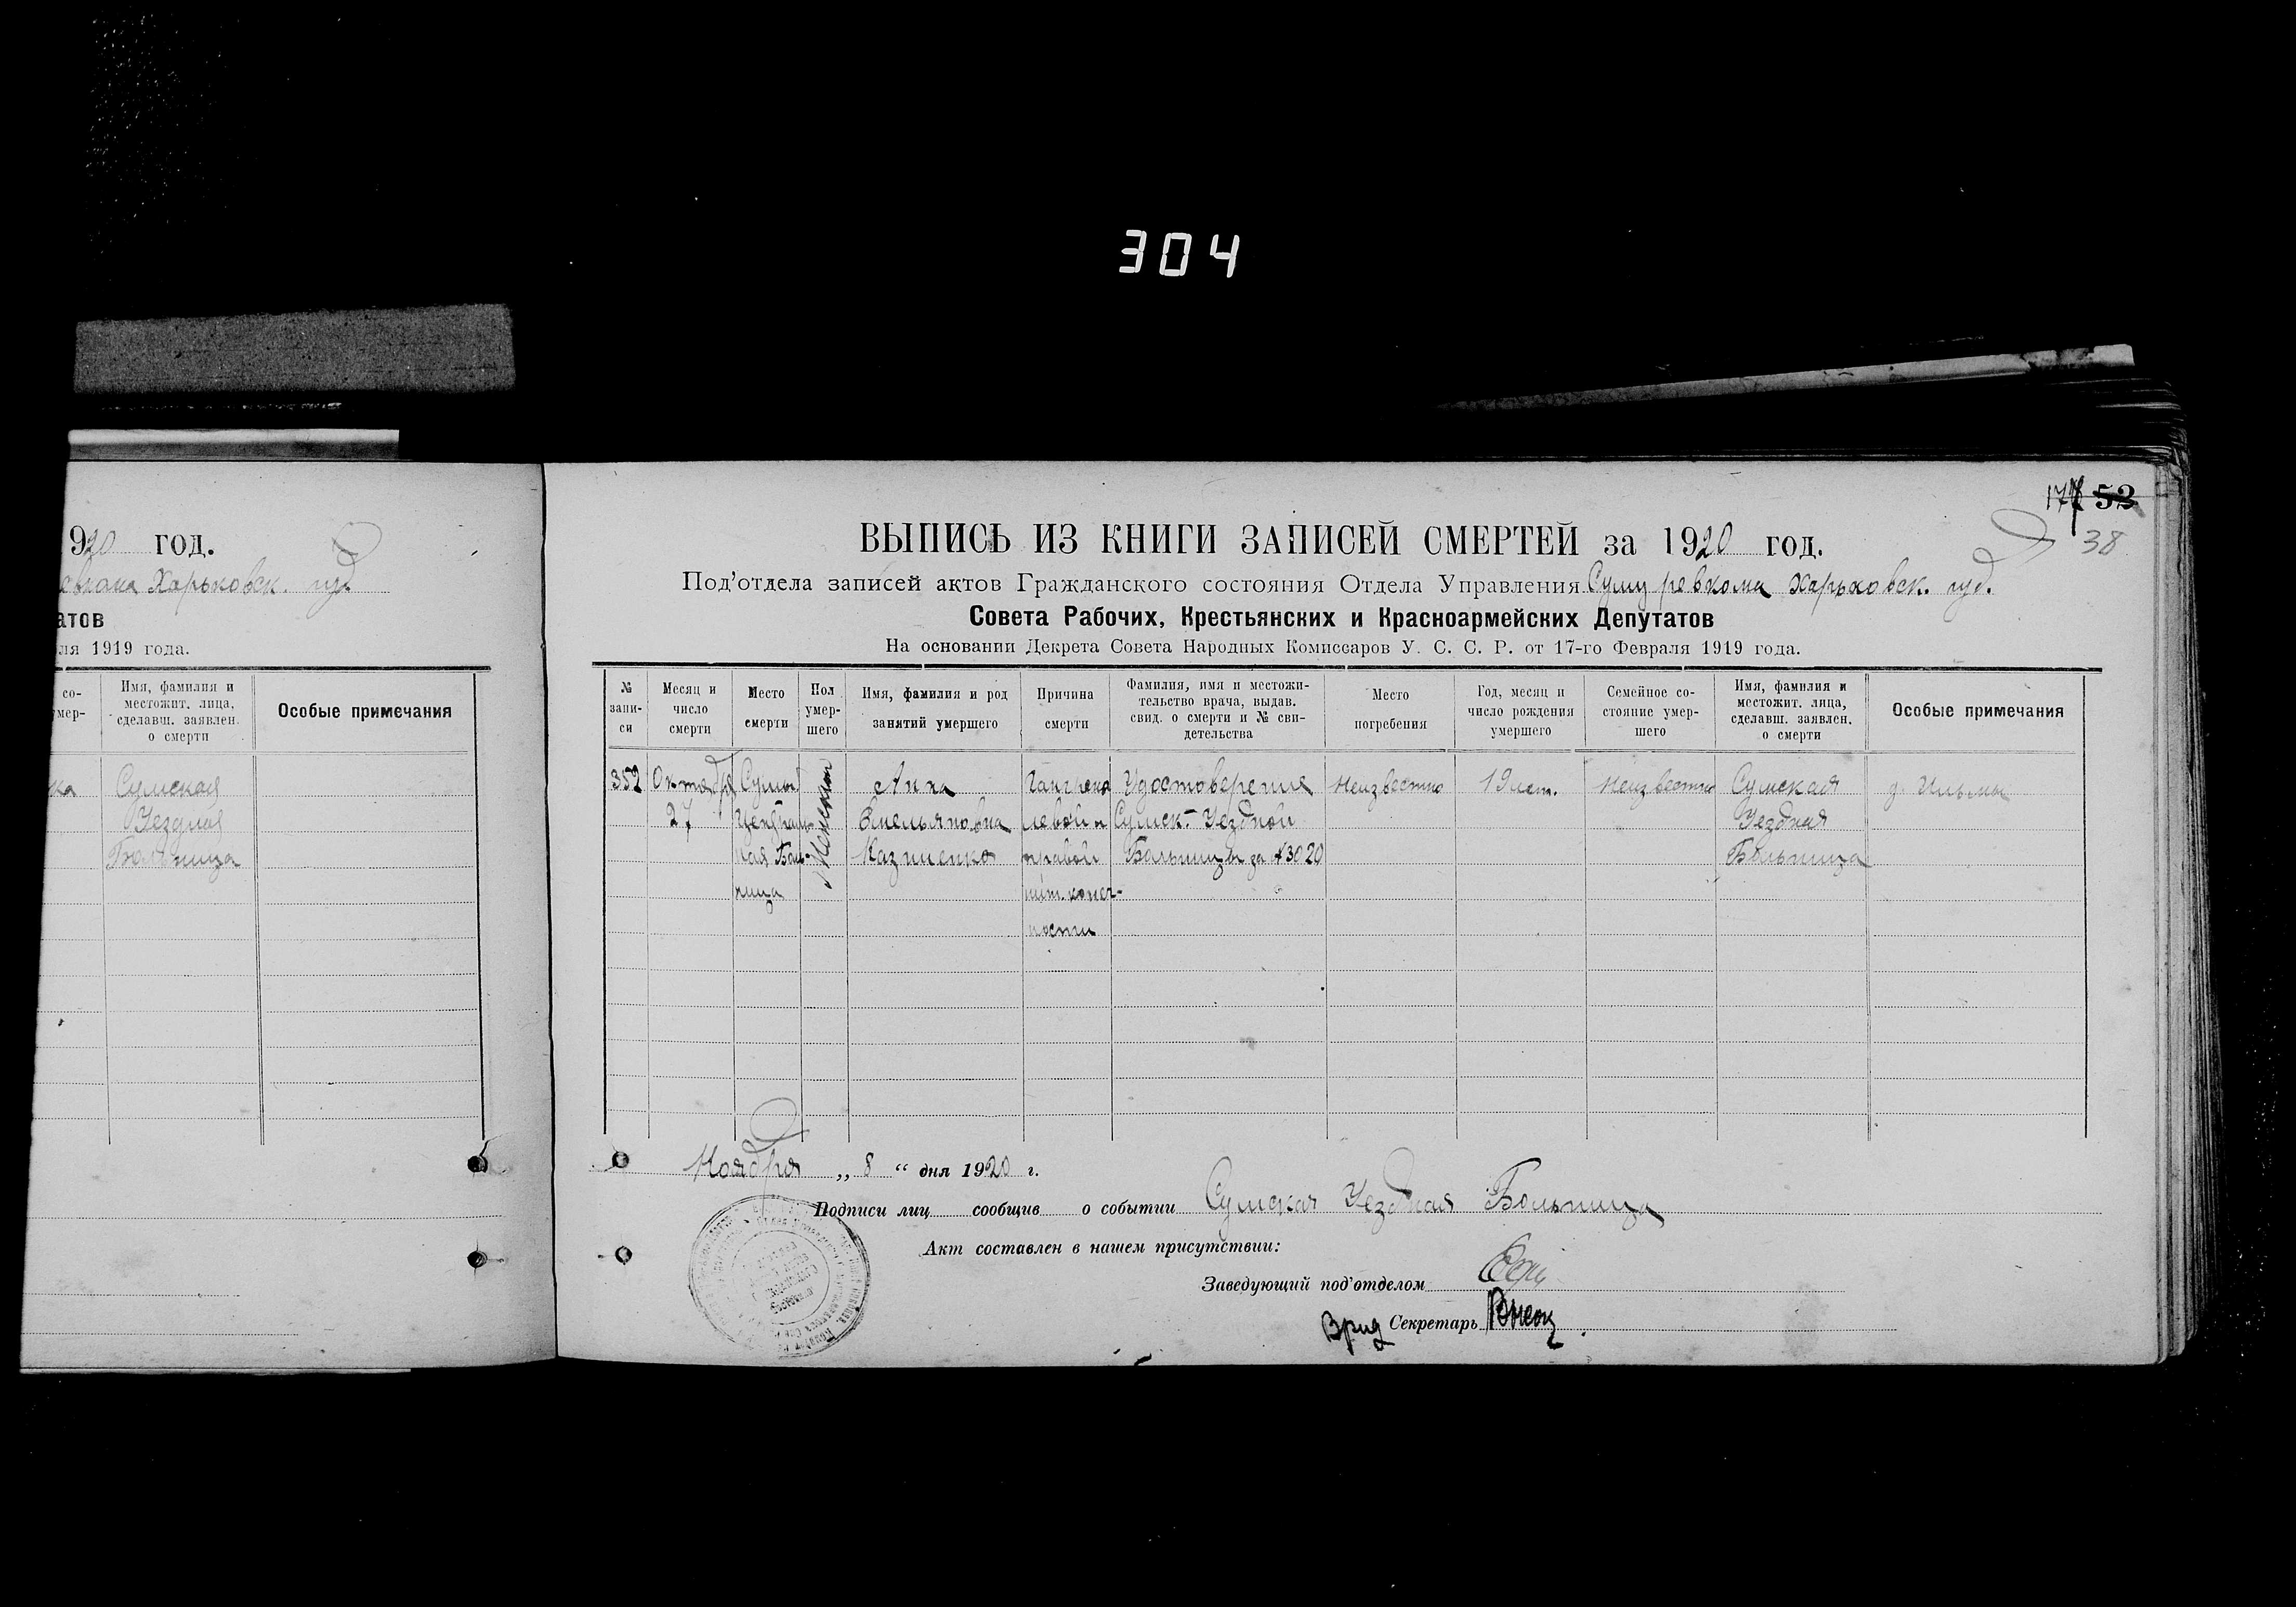 304
920 год.
Харьковск. губ.
атов
ля 1919 года.
со-
мер-
Имя, фамилия и
местожит. лица,
сделавш. заявлен.
о смерти
Особые примечания
ка
Сумская
Уездная
Больница
53
38
ВЫПИСЬ ИЗ КНИГИ ЗАПИСЕЙ СМЕРТЕЙ за 1920 год.
Под'отдела записей актов Гражданского состояния Отдела Управления Сум ревкома Харьковск. губ.
Совета Рабочих, Крестьянских и Красноармейских Депутатов
На основании Декрета Совета Народных Комиссаров У. С. С. Р. от 17-го Февраля 1919 года.
№
запи-
си
Месяц и
число
смерти
Место
смерти
Пол
умер-
шего
Имя, фамилия и род
занятий умершего
Причина
смерти
Фамилия, имя и местожи-
тельство врача, выдав.
свид. о смерти и № сви-
детельства
Место
погребения
Год, месяц и
число рождения
умершего
Семейное со-
стояние умер-
шего
Имя, фамилия и
местожит. лица,
сделавш. заявлен.
о смерти
Особые примечания
352
Октября
27
Сумы
Централь-
ная Боль-
ница
Женский
Анна
Емельяновна
Казниенко
Гангрена
левой и
правой
ниж. конеч-
ности
Удостоверение
Сумск. Уездной
Больницы за № 3020
Неизвестно
19 лет.
Неизвестно
Сумская
Уездная
Больница
Ноября „ 8 “ дня 1920 г.
Подписи лиц сообщив о событии Сумская Уездная Больница
Акт составлен в нашем присутствии:
Заведующий под'отделом
Врид Секретарь